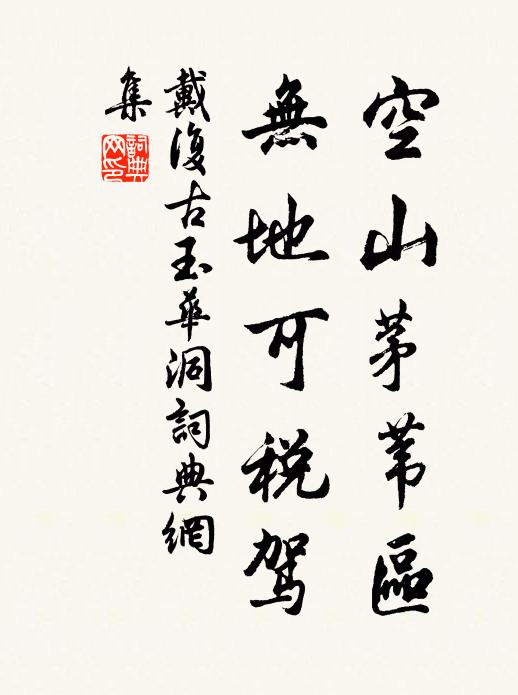 空山茅苇區
無地可税駕
戴復古玉華洞詞典網
集
詞典網印